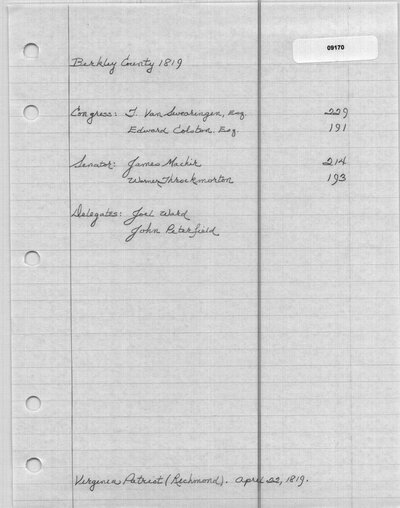 09170
Berkley County 1819
Congress: T. Van Swearingen, Esq. 229
Edward Colston, Esq. 191
Senator: James Machir 214
Warner Throckmorton 193
Delegates: Joel Ward
John Peterfield
Virginia Patriot (Richmond). April 22, 1819.